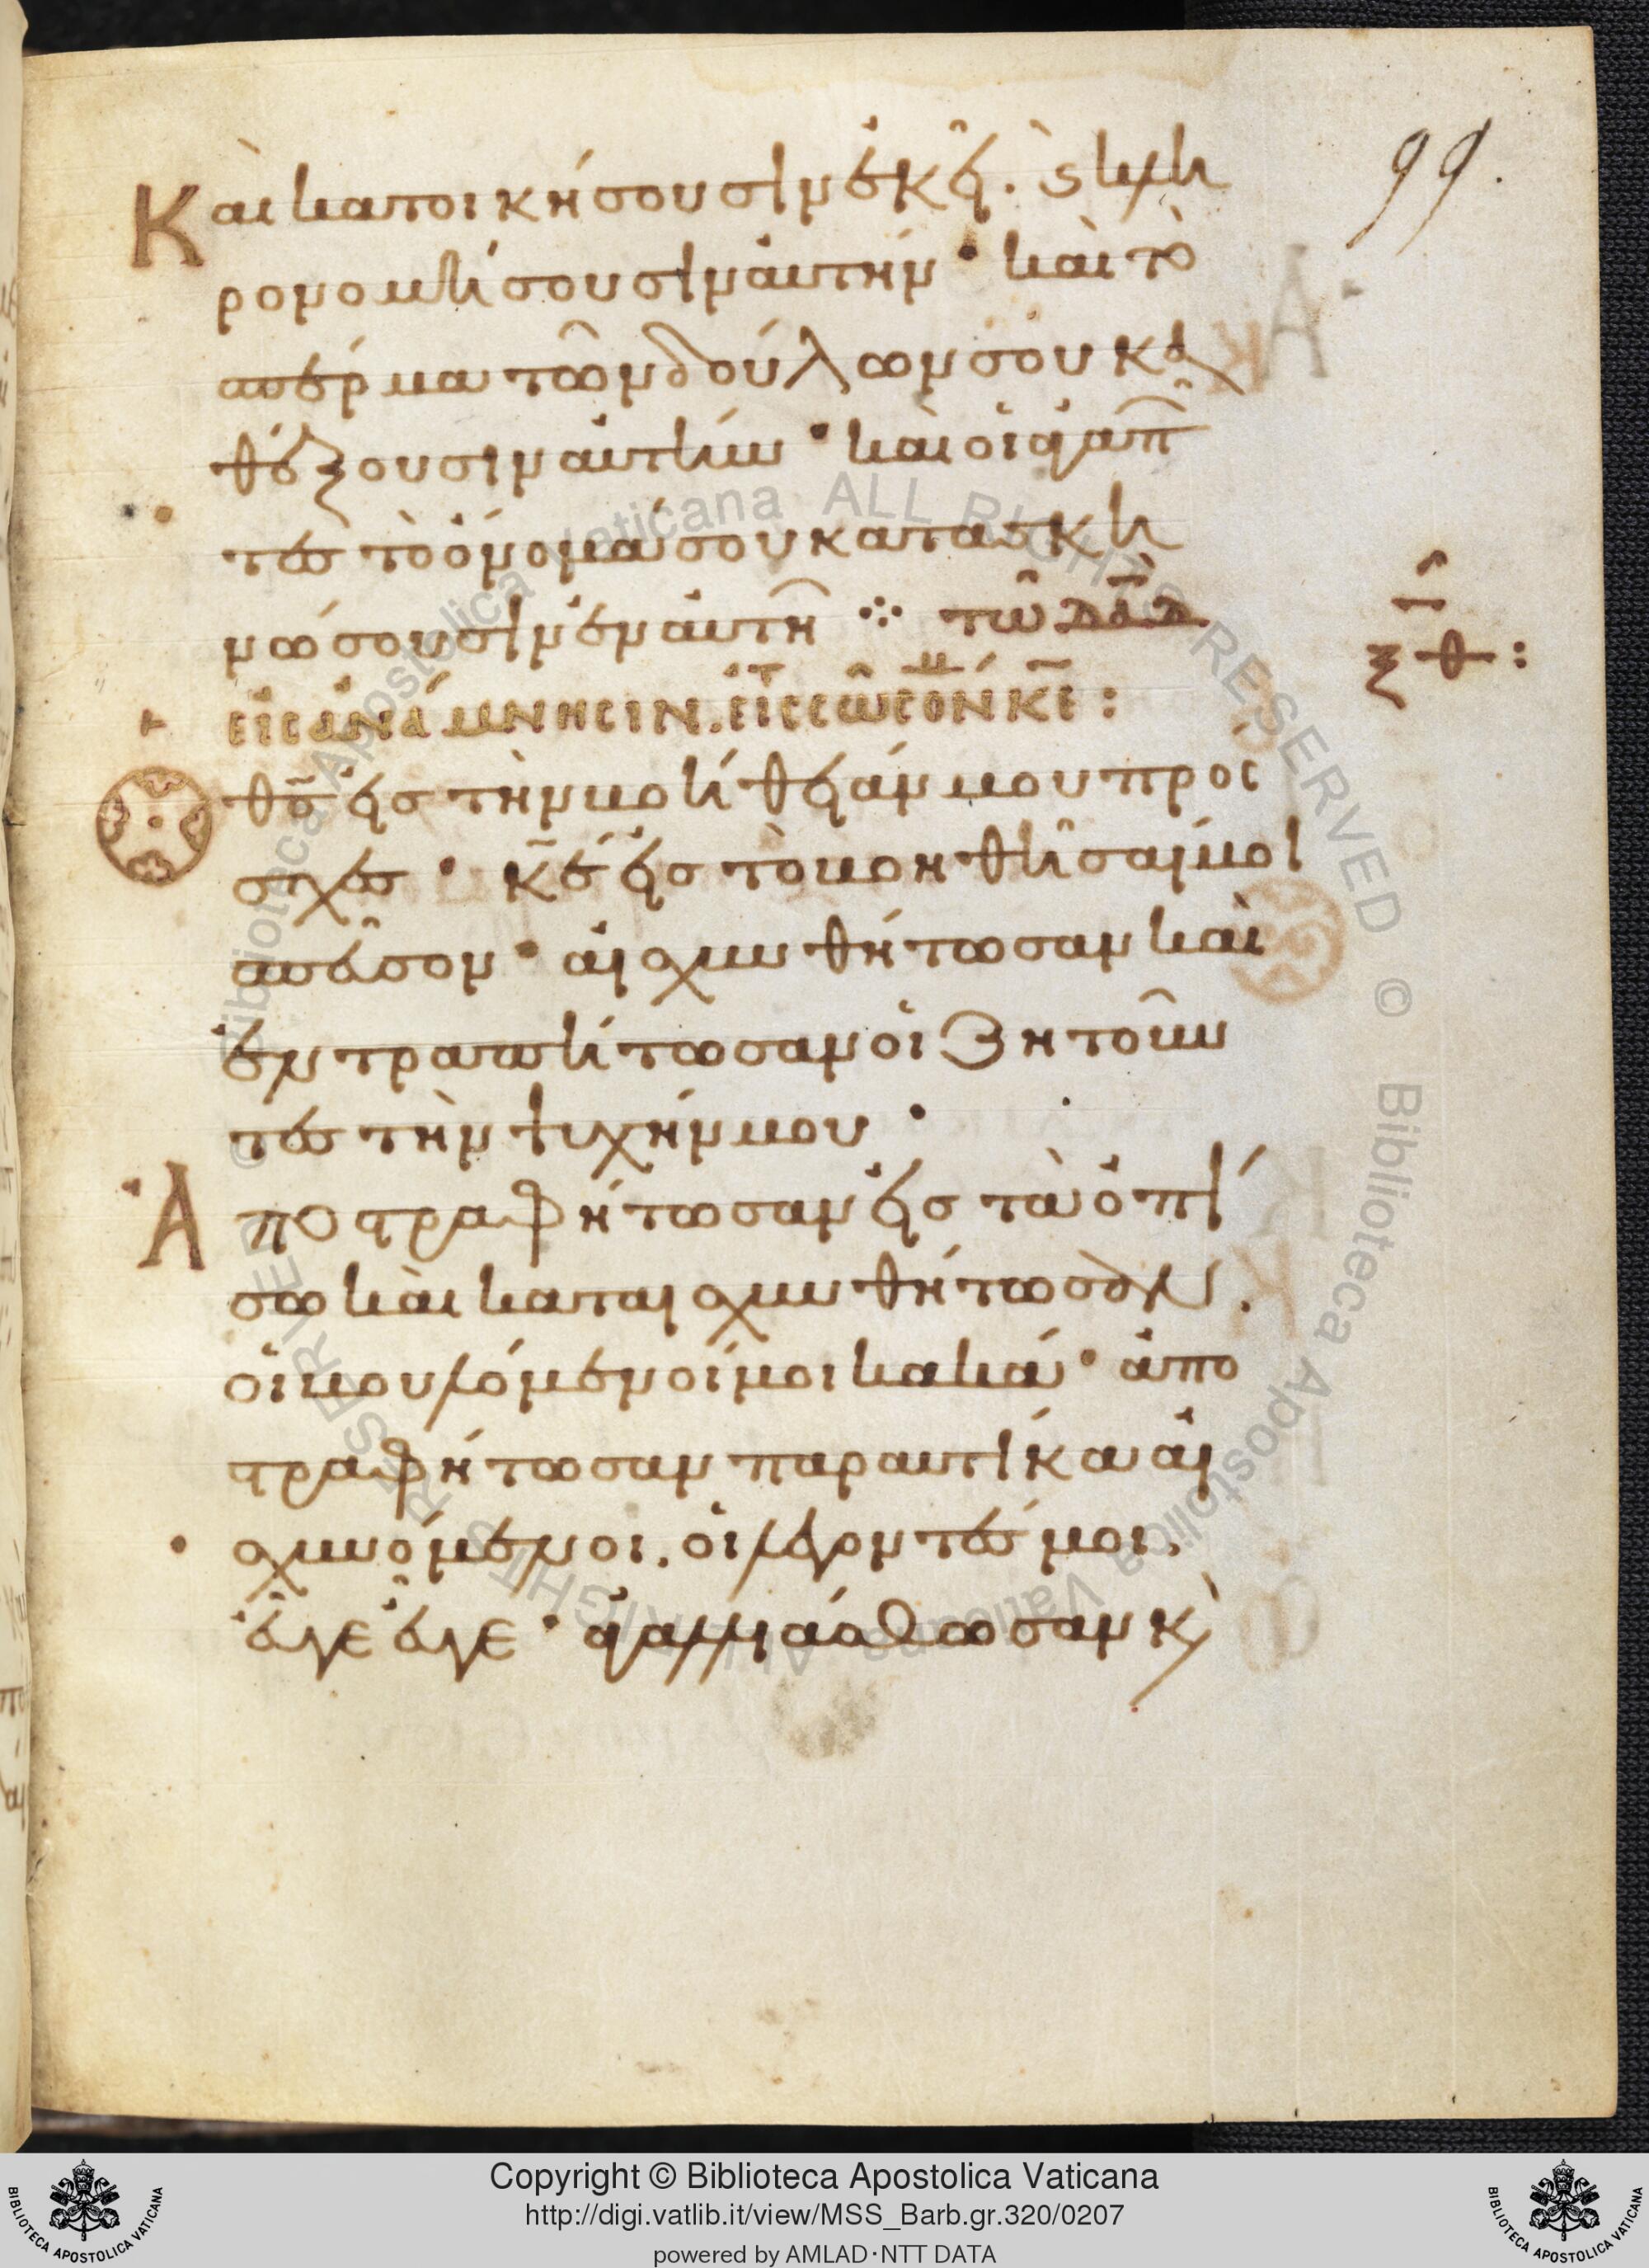 99.
Καὶ κατοικήσουσιν ἐκεῖ. ς κλη
ρονομήσουσιν αὐτήν· καὶ τὸ
σπέρμα τῶν δούλων σου κα
θέξουσιν αὐτήν· καὶ οἱ ἀγαπῶν
τες τὸ ὄνομά σου κατασκη
νώσουσιν ἐν αὐτῆ ⁘ τῶ δαδ
εἰς ἀνάμνησιν. εἰς τ σῶσόν με κε:
ξθ:
θς εἰς τὴν βοήθειάν μου πρόσ
σχες· κε εἰς τὸ βοηθῆσαί μοι
σπεῦσον· αἰσχυνθήτωσαν καὶ
ἐντραπήτωσαν οἱ ζητοῦν
τες τὴν ψυχήν μου·
Ἀποστραφήτωσαν εἰς τὰ ὀπί
σω καὶ καταισχυνθήτωσαν.
οἱ βουλόμενοί μοι κακά· ἀπο
στραφήτωσαν παραυτίκα αἰ
σχυνόμενοι. οἱ λέγοντές μοι.
εὖγε εὖγε· ἀγαλλιάσθωσαν κ
Copyright © Biblioteca Apostolica Vaticana
http://digi.vatlib.it/view/MSS_Barb.gr.320/0207
powered by AMLAD·NTT DATA
BIBLIOTECA APOSTOLICA VATICANA
BIBLIOTECA APOSTOLICA VATICANA
Biblioteca Apostolica Vaticana ALL RIGHTS RESERVED ©
Biblioteca Apostolica Vaticana ALL RIGHTS RESERVED ©